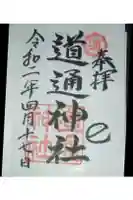 奉拝
道通神社
令和二年四月十七日